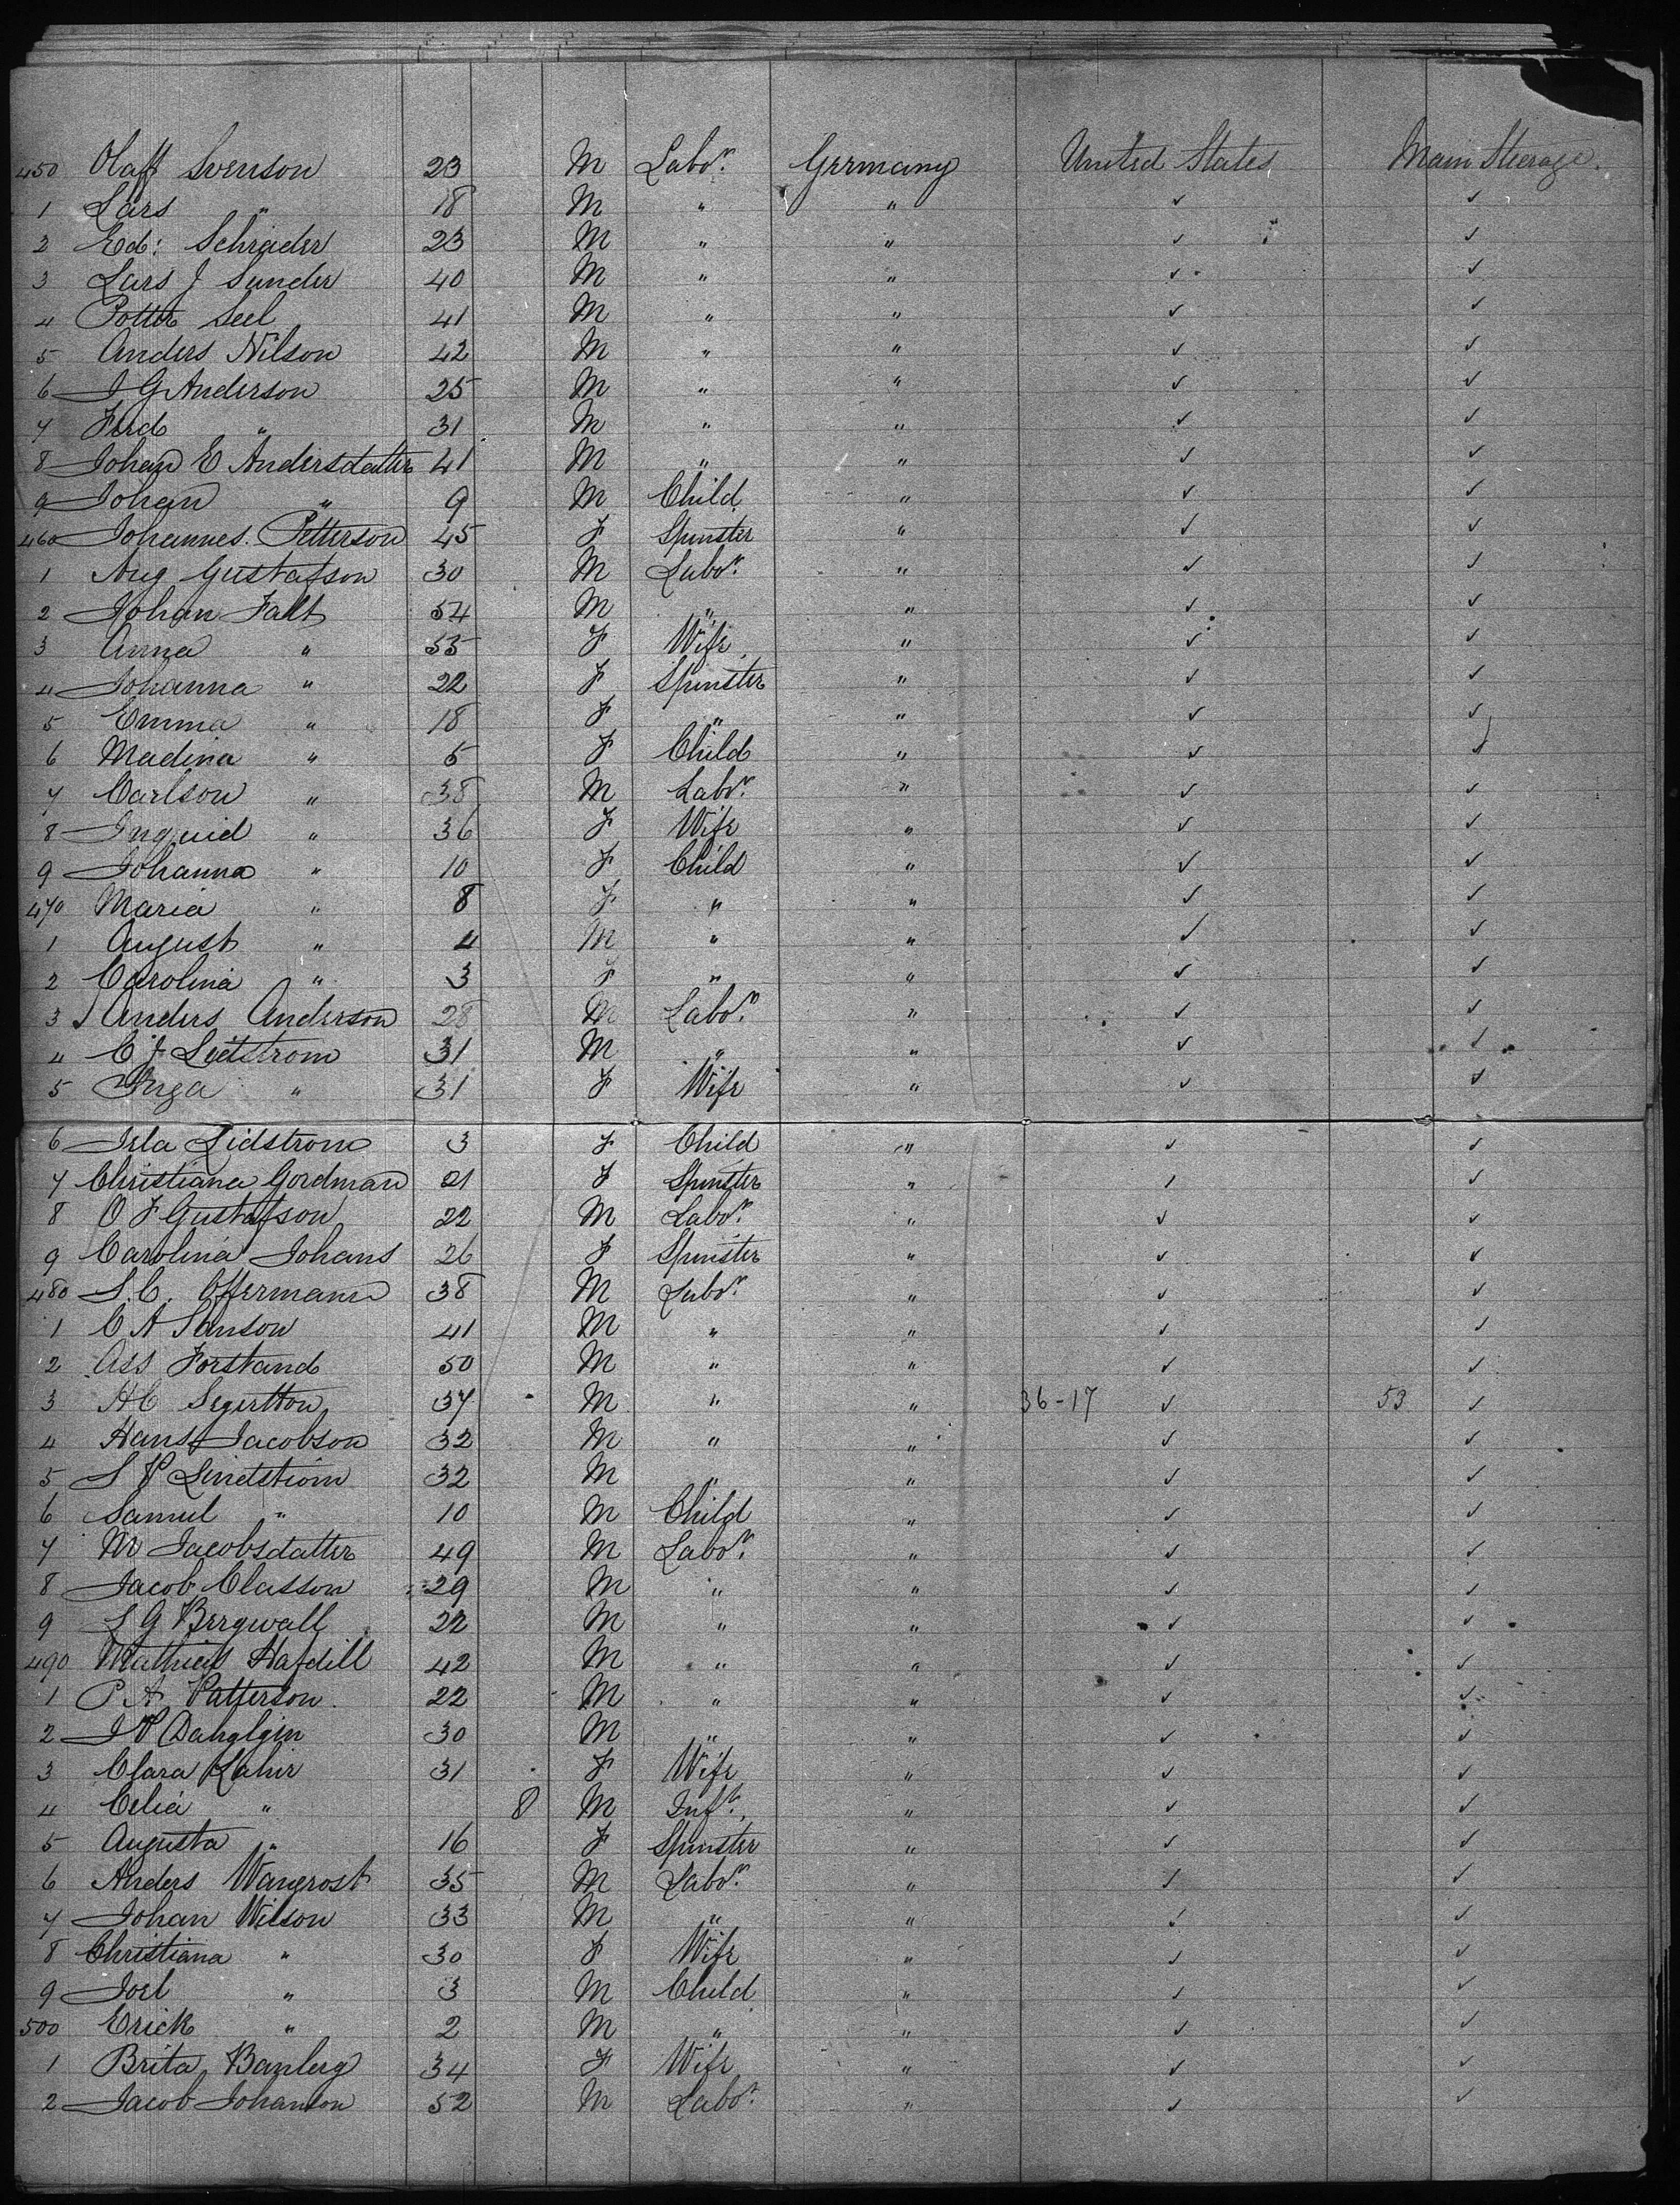 450 Olaff Svenson 23 M Labor. Germany United States Main Steerage.
1 Lars " 18 M " " ✓ ✓
2 Ed: Schrader 23 M " " ✓ ✓
3 Lars J Sunder 40 M " " ✓ ✓
4 Potter Seel 41 M " " ✓ ✓
5 Anders Nilson 42 M " " ✓ ✓
6 J G Anderson 25 M " " ✓ ✓
7 Ferd " 31 M " " ✓ ✓
8 Johan E Andersdatter 41 M " " ✓ ✓
9 Johan " 9 M Child " ✓ ✓
460 Johannes. Petterson 45 F Spinster " ✓ ✓
1 Aug Gustafson 30 M Labor. " ✓ ✓
2 Johan Falt 54 M " " ✓ ✓
3 Anna " 55 F Wife " ✓ ✓
4 Johanna " 22 F Spinster " ✓ ✓
5 Emma " 18 F " " ✓ ✓
6 Madina " 5 F Child " ✓ ✓
7 Carlson " 38 M Labor. " ✓ ✓
8 Inguid " 36 F Wife " ✓ ✓
9 Johanna " 10 F Child " ✓ ✓
470 Maria " 8 F " " ✓ ✓
1 August " 4 M " " ✓ ✓
2 Carolina " 3 F " " ✓ ✓
3 Anders Anderson 28 M Labor. " ✓ ✓
4 C J Lidstrom 31 M " " ✓ ✓
5 Inga " 31 F Wife " ✓ ✓
6 Isla Lidstrom 3 F Child " ✓ ✓
7 Christiana Gordman 21 F Spinster " ✓ ✓
8 O F Gustafson 22 M Labor. " ✓ ✓
9 Carolina Johans 26 F Spinster " ✓ ✓
480 S. C. Offermann 38 M Labor. " ✓ ✓
1 C A Sanson 41 M " " ✓ ✓
2 Ass Forstand 50 M " " ✓ ✓
3 H C Segertton 37 M " " 36-17 ✓ 53 ✓
4 Hans Jacobson 32 M " " ✓ ✓
5 S P Lindstrom 32 M " " ✓ ✓
6 Samul " 10 M Child " ✓ ✓
7 M Jacobsdatter 49 M Labor. " ✓ ✓
8 Jacob Classon 29 M " " ✓ ✓
9 S G Bergwall 22 M " " ✓ ✓
490 Mathias Hafdill 42 M " " ✓ ✓
1 P A Patterson 22 M " " ✓ ✓
2 J P Dahlgin 30 M " " ✓ ✓
3 Clara Lahir 31 F Wife " ✓ ✓
4 Celia " 8 M Inft. " ✓ ✓
5 Augusta " 16 F Spinster " ✓ ✓
6 Anders Wangrost 35 M Labor. " ✓ ✓
7 Johan Wilson 33 M " " ✓ ✓
8 Christiana " 30 F Wife " ✓ ✓
9 Joel " 3 M Child " ✓ ✓
500 Erick " 2 M " " ✓ ✓
1 Brita Banberg 34 F Wife " ✓ ✓
2 Jacob Johanson 52 M Labor. " ✓ ✓